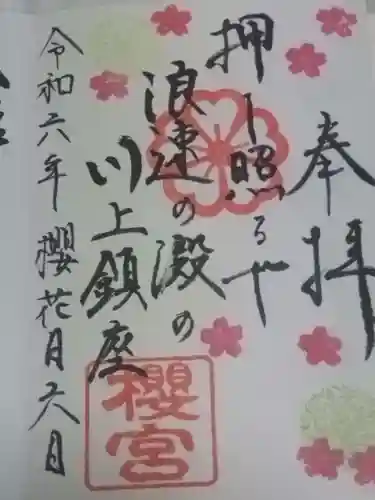 奉拝
押し照るや
浪速の澱の
川上鎮座
令和六年櫻花月六日
櫻宮